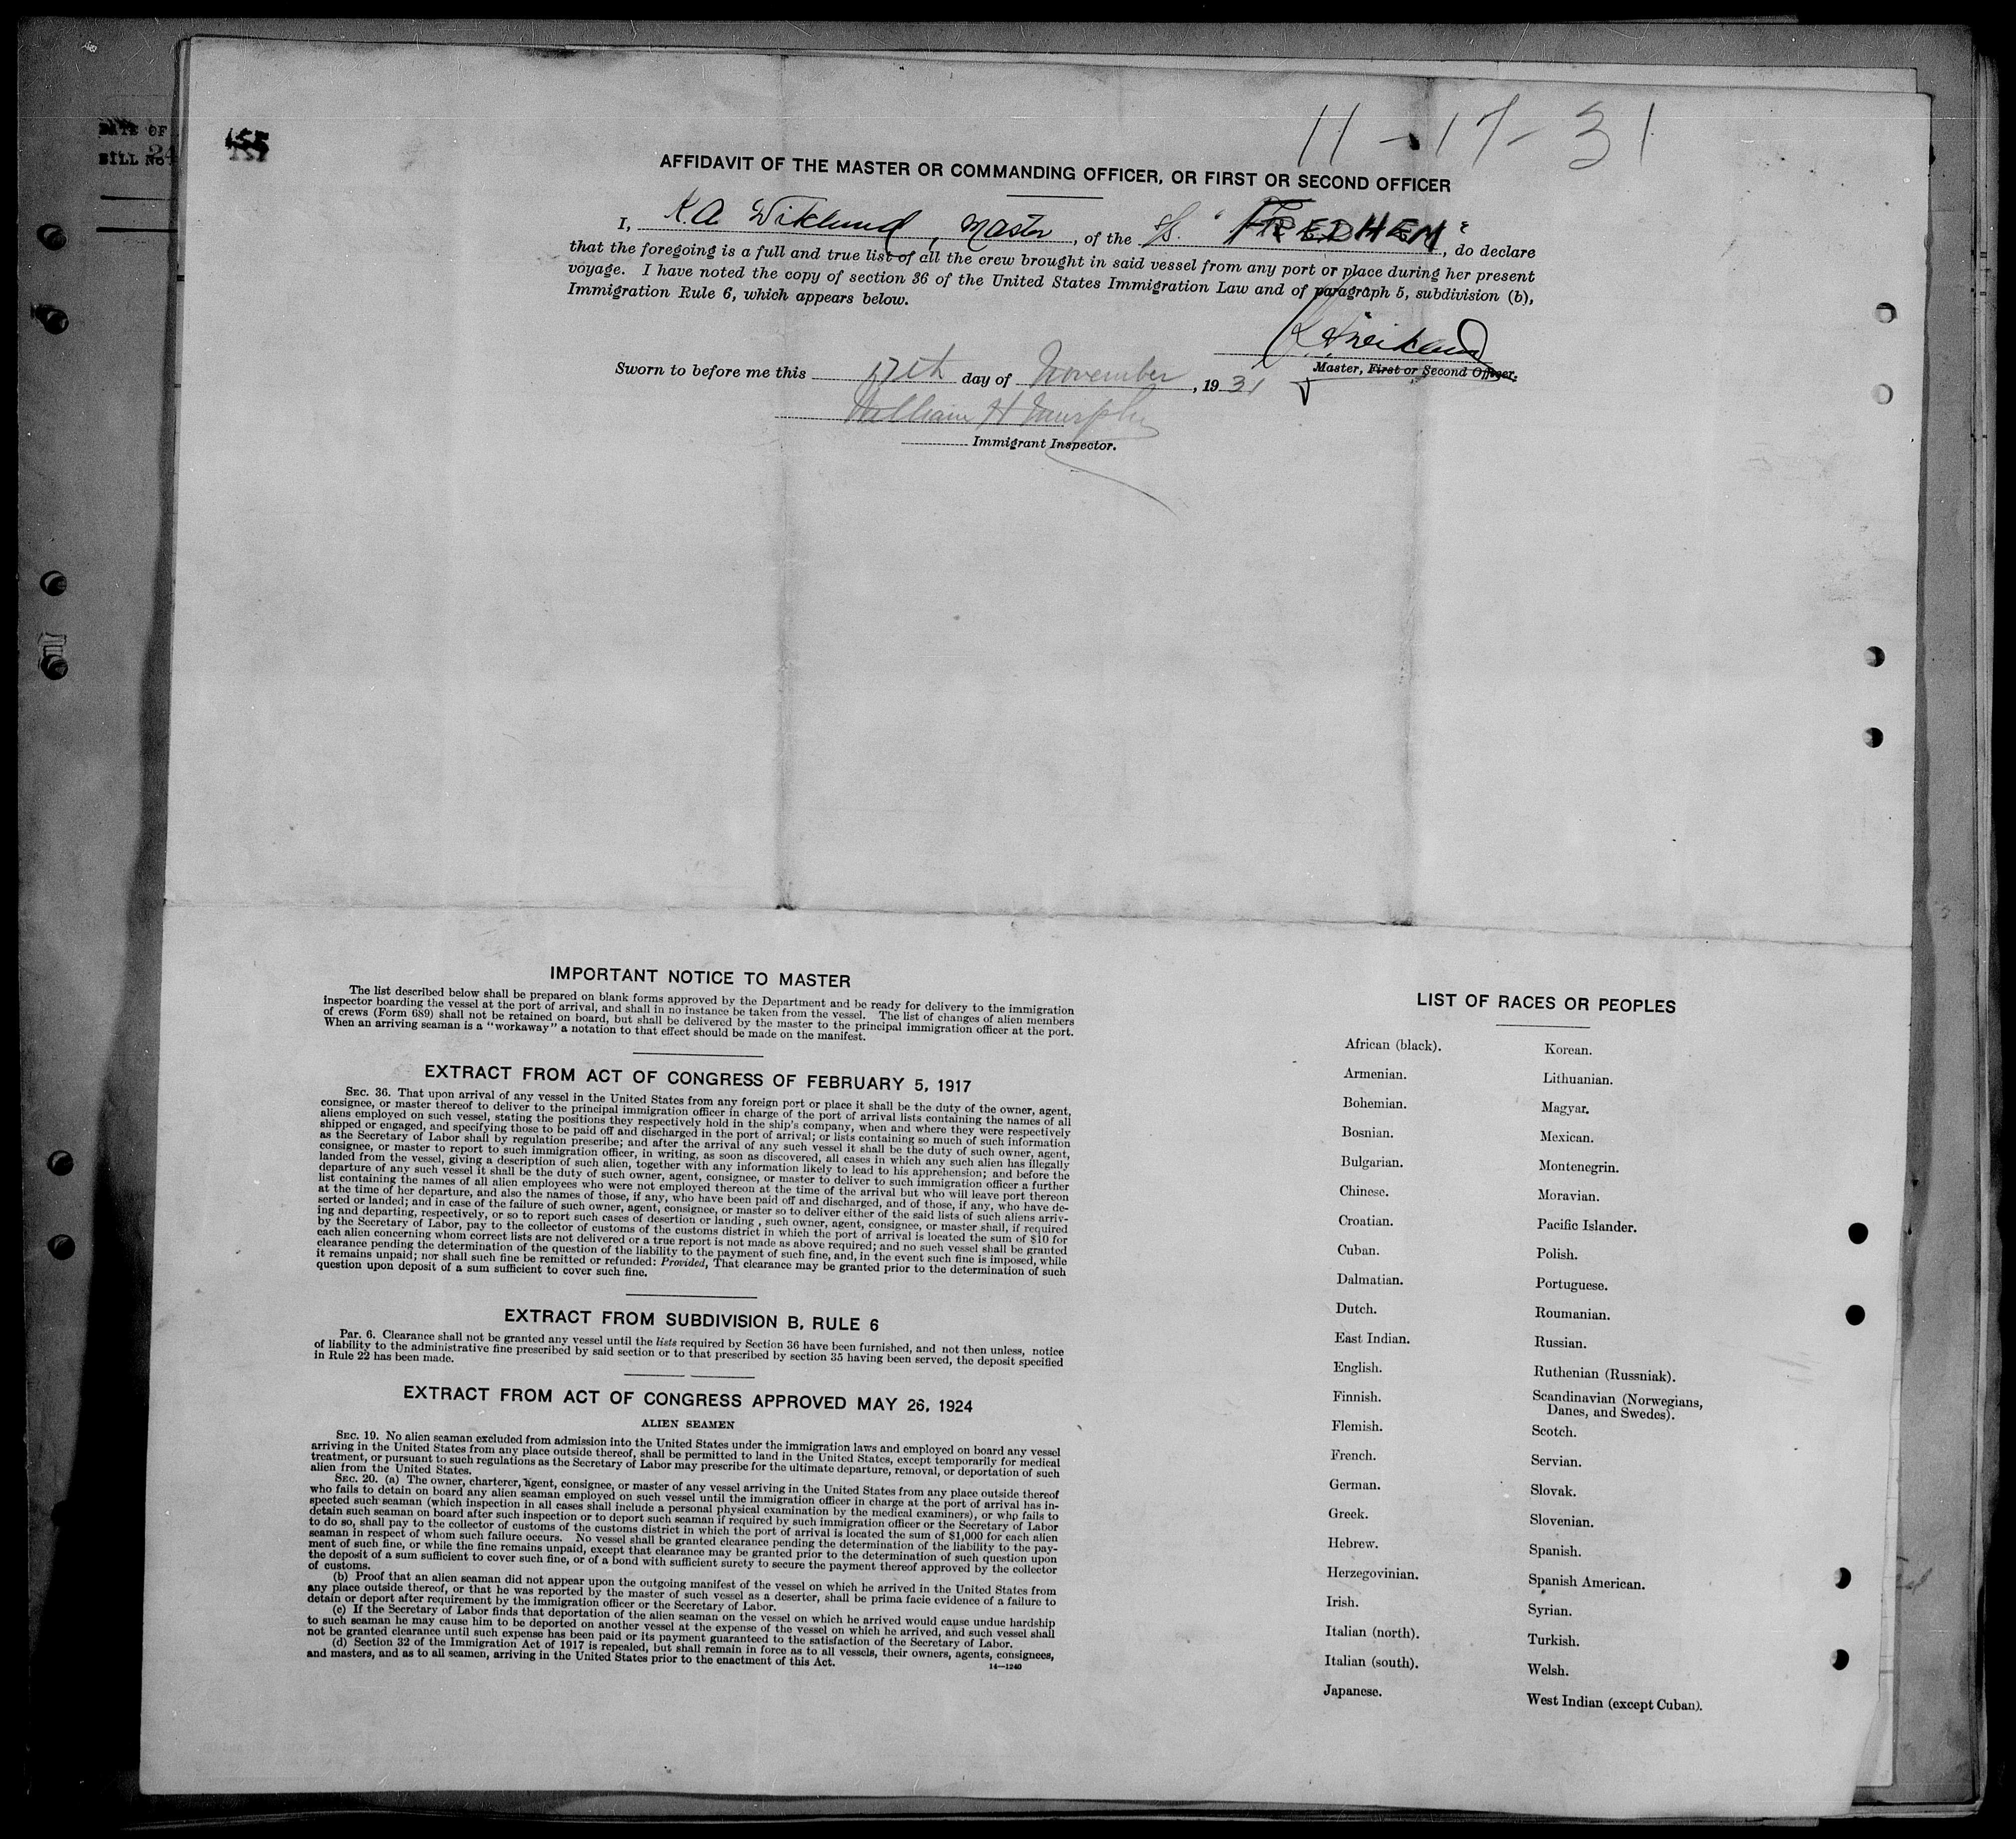 DATE OF
BILL No 24
155
11-17-31
AFFIDAVIT OF THE MASTER OR COMMANDING OFFICER, OR FIRST OR SECOND OFFICER
I, K.A. Wiklund, Master, of the S/S. "FREDHEM", do declare
that the foregoing is a full and true list of all the crew brought in said vessel from any port or place during her present
voyage. I have noted the copy of section 36 of the United States Immigration Law and of paragraph 5, subdivision (b),
Immigration Rule 6, which appears below.
K. A. Wiklund
Master, First or Second Officer.
Sworn to before me this 17th day of November, 1931
William H Murphy
Immigrant Inspector.
IMPORTANT NOTICE TO MASTER
The list described below shall be prepared on blank forms approved by the Department and be ready for delivery to the immigration
inspector boarding the vessel at the port of arrival, and shall in no instance be taken from the vessel. The list of changes of alien members
of crews (Form 689) shall not be retained on board, but shall be delivered by the master to the principal immigration officer at the port.
When an arriving seaman is a "workaway" a notation to that effect should be made on the manifest.
EXTRACT FROM ACT OF CONGRESS OF FEBRUARY 5, 1917
SEC. 36. That upon arrival of any vessel in the United States from any foreign port or place it shall be the duty of the owner, agent,
consignee, or master thereof to deliver to the principal immigration officer in charge of the port of arrival lists containing the names of all
aliens employed on such vessel, stating the positions they respectively hold in the ship's company, when and where they were respectively
shipped or engaged, and specifying those to be paid off and discharged in the port of arrival; or lists containing so much of such information
as the Secretary of Labor shall by regulation prescribe; and after the arrival of any such vessel it shall be the duty of such owner, agent,
consignee, or master to report to such immigration officer, in writing, as soon as discovered, all cases in which any such alien has illegally
landed from the vessel, giving a description of such alien, together with any information likely to lead to his apprehension; and before the
departure of any such vessel it shall be the duty of such owner, agent, consignee, or master to deliver to such immigration officer a further
list containing the names of all alien employees who were not employed thereon at the time of the arrival but who will leave port thereon
at the time of her departure, and also the names of those, if any, who have been paid off and discharged, and of those, if any, who have de-
serted or landed; and in case of the failure of such owner, agent, consignee, or master so to deliver either of the said lists of such aliens arriv-
ing and departing, respectively, or so to report such cases of desertion or landing, such owner, agent, consignee, or master shall, if required
by the Secretary of Labor, pay to the collector of customs of the customs district in which the port of arrival is located the sum of $10 for
each alien concerning whom correct lists are not delivered or a true report is not made as above required; and no such vessel shall be granted
clearance pending the determination of the question of the liability to the payment of such fine, and, in the event such fine is imposed, while
it remains unpaid; nor shall such fine be remitted or refunded: Provided, That clearance may be granted prior to the determination of such
question upon deposit of a sum sufficient to cover such fine.
EXTRACT FROM SUBDIVISION B, RULE 6
Par. 6. Clearance shall not be granted any vessel until the lists required by Section 36 have been furnished, and not then unless, notice
of liability to the administrative fine prescribed by said section or to that prescribed by section 35 having been served, the deposit specified
in Rule 22 has been made.
EXTRACT FROM ACT OF CONGRESS APPROVED MAY 26, 1924
ALIEN SEAMEN
SEC. 19. No alien seaman excluded from admission into the United States under the immigration laws and employed on board any vessel
arriving in the United States from any place outside thereof, shall be permitted to land in the United States, except temporarily for medical
treatment, or pursuant to such regulations as the Secretary of Labor may prescribe for the ultimate departure, removal, or deportation of such
alien from the United States.
SEC. 20. (a) The owner, charterer, agent, consignee, or master of any vessel arriving in the United States from any place outside thereof
who fails to detain on board any alien seaman employed on such vessel until the immigration officer in charge at the port of arrival has in-
spected such seaman (which inspection in all cases shall include a personal physical examination by the medical examiners), or who fails to
detain such seaman on board after such inspection or to deport such seaman if required by such immigration officer or the Secretary of Labor
to do so, shall pay to the collector of customs of the customs district in which the port of arrival is located the sum of $1,000 for each alien
seaman in respect of whom such failure occurs. No vessel shall be granted clearance pending the determination of the liability to the pay-
ment of such fine, or while the fine remains unpaid, except that clearance may be granted prior to the determination of such question upon
the deposit of a sum sufficient to cover such fine, or of a bond with sufficient surety to secure the payment thereof approved by the collector
of customs.
(b) Proof that an alien seaman did not appear upon the outgoing manifest of the vessel on which he arrived in the United States from
any place outside thereof, or that he was reported by the master of such vessel as a deserter, shall be prima facie evidence of a failure to
detain or deport after requirement by the immigration officer or the Secretary of Labor.
(c) If the Secretary of Labor finds that deportation of the alien seaman on the vessel on which he arrived would cause undue hardship
to such seaman he may cause him to be deported on another vessel at the expense of the vessel on which he arrived, and such vessel shall
not be granted clearance until such expense has been paid or its payment guaranteed to the satisfaction of the Secretary of Labor.
(d) Section 32 of the Immigration Act of 1917 is repealed, but shall remain in force as to all vessels, their owners, agents, consignees,
and masters, and as to all seamen, arriving in the United States prior to the enactment of this Act.
14—1240
LIST OF RACES OR PEOPLES
African (black).
Armenian.
Bohemian.
Bosnian.
Bulgarian.
Chinese.
Croatian.
Cuban.
Dalmatian.
Dutch.
East Indian.
English.
Finnish.
Flemish.
French.
German.
Greek.
Hebrew.
Herzegovinian.
Irish.
Italian (north).
Italian (south).
Japanese.
Korean.
Lithuanian.
Magyar.
Mexican.
Montenegrin.
Moravian.
Pacific Islander.
Polish.
Portuguese.
Roumanian.
Russian.
Ruthenian (Russniak).
Scandinavian (Norwegians,
Danes, and Swedes).
Scotch.
Servian.
Slovak.
Slovenian.
Spanish.
Spanish American.
Syrian.
Turkish.
Welsh.
West Indian (except Cuban).